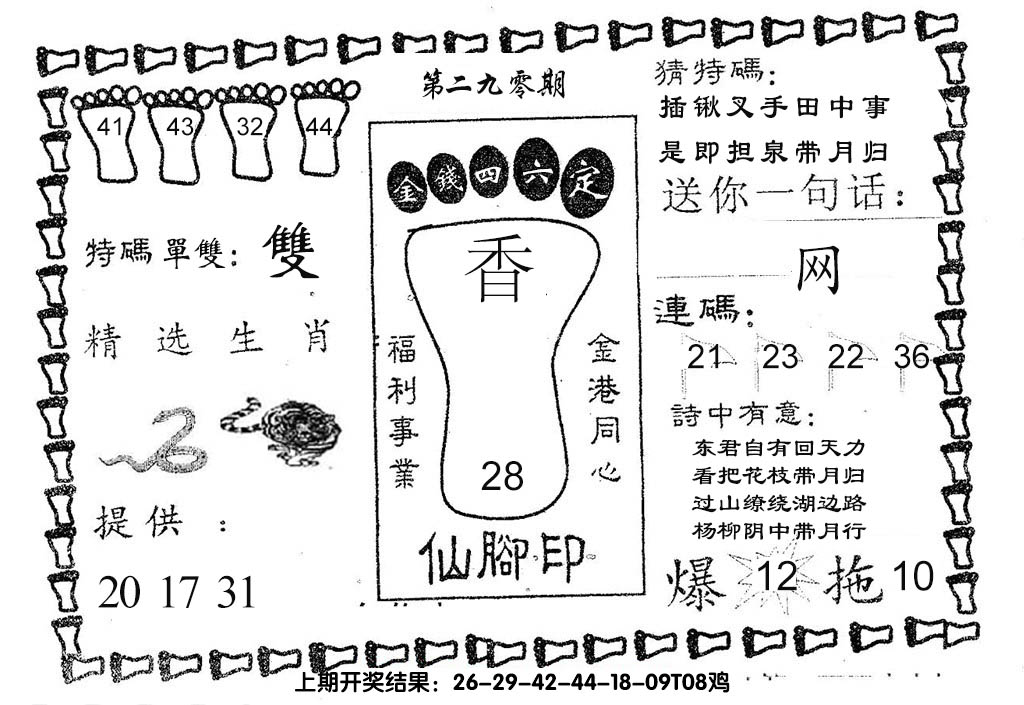 第二九零期
41 43 32 44
特碼單雙：雙
精选生肖
提供：
20 17 31
金錢四六定
香
福利事業
金港同心
28
仙腳印
猜特碼：
插锹叉手田中事
是即担泉带月归
送你一句话：
网
連碼：
21 23 22 36
詩中有意：
东君自有回天力
看把花枝带月归
过山缭绕湖边路
杨柳阴中带月行
爆 12 拖 10
上期开奖结果：26-29-42-44-18-09T08鸡